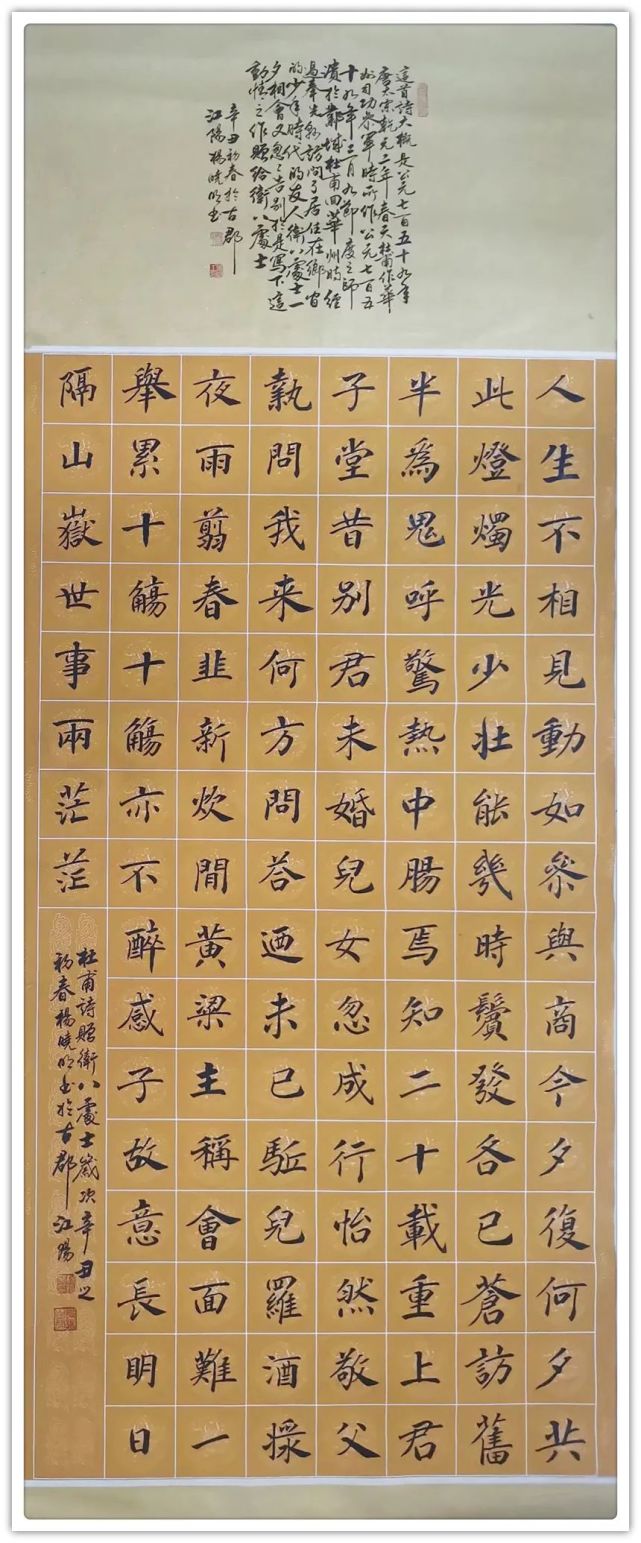 這首詩大概是公元七百五十九年
唐太宗乾元二年春天杜甫作華
州司功參軍時所作公元七百五
十九年三月九節度之師
潰於鄴城杜甫回華州時經
過奉先縣訪問了居住在鄉間
的少年時代的友人衛八處士一
夕相會又匆匆告別於是寫下這
動情之作贈給衛八處士
辛丑初春於古郡
江陽楊曉明書
人生不相見動如參與商今夕復何夕共
此燈燭光少壯能幾時鬢發各已蒼訪舊
半為鬼呼驚熱中腸焉知二十載重上君
子堂昔別君未婚兒女忽成行怡然敬父
執問我来何方問答迺未已駈兒羅酒漿
夜雨翦春韭新炊間黃梁主稱會面難一
舉累十觴十觴亦不醉感子故意長明日
隔山嶽世事兩茫茫
杜甫詩贈衛八處士歲次辛丑之
初春楊曉明書於古郡江陽